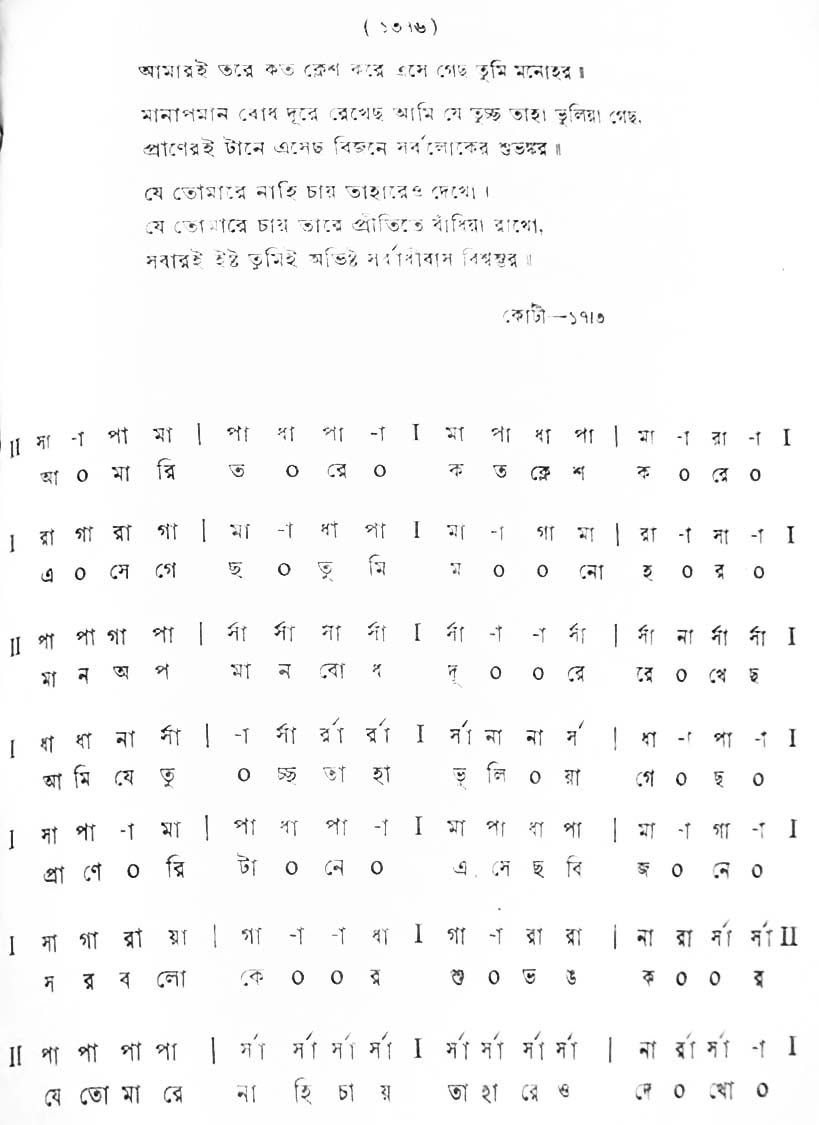 ( ১৩৭৬ )
আমারই তরে কত ক্লেশ করে এসে গেছ তুমি মনোহর ॥
মানাপমান বোধ দূরে রেখেছ আমি যে তুচ্ছ তাহা ভুলিয়া গেছ,
প্রাণেরই টানে এসেচ বিজনে সর্বলোকের শুভঙ্কর ॥
যে তোমারে নাহি চায় তাহারেও দেখো ।
যে তোমারে চায় তারে প্রীতিতে বাঁধিয়া রাখো,
সবারই ইষ্ট তুমিই অভিষ্ট সর্বাধীবাস বিশ্বম্ভর ॥
কোটী—১৭।৩
II সা -া পা মা | পা ধা পা -া I মা পা ধা পা | মা -া রা -া I
আ ০ মা রি ত ০ রে ০ ক ত ক্লে শ ক ০ রে ০
I রা গা রা গা | মা -া ধা পা I মা -া গা মা | রা -া সা -া I
এ ০ সে গে ছ ০ তু মি ম ০ ০ নো হ ০ র ০
II পা পা গা পা | র্সা র্সা না র্সা I র্সা -া -া র্সা | র্সা না র্সা র্সা I
মা ন অ প মা ন বো ধ দূ ০ ০ রে রে ০ খে ছ
I ধা ধা না র্সা | -া র্সা র্রা র্রা I র্সা না না র্স | ধা -া পা -া I
আ মি যে তু ০ চ্ছ তা হা ভূ লি ০ য়া গে ০ ছ ০
I সা পা -া মা | পা ধা পা -া I মা পা ধা পা | মা -া গা -া I
প্রা ণে ০ রি টা ০ নে ০ এ সে ছ বি জ ০ নে ০
I সা গা রা য়া | গা -া -া ধা I গা -া রা রা | না রা র্সা র্সা II
স র ব লো কে ০ ০ র শু ০ ভ ঙ ক ০ ০ র
II পা পা পা পা | র্সা র্সা র্সা র্সা I র্সা র্সা র্সা র্সা | না র্রা র্সা -া I
যে তো মা রে না হি চা য় তা হা রে ও দে ০ খো ০